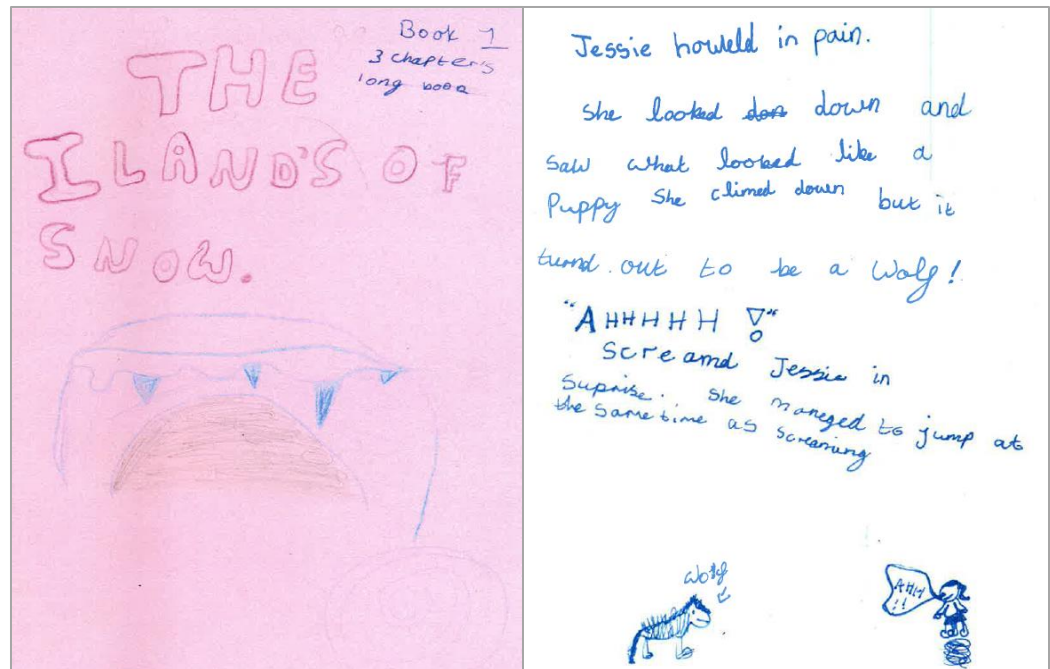 Book 1
3 chapter's
long book
THE
ILAND'S OF
SNOW.
Jessie howeld in pain.
She looked down and
saw what looked like a
Puppy She climed down but it
turnd out to be a Wolf!
"AHHHHH !"
Screamd Jessie in
Suprise. She maneged to jump at
the same time as screaming
Wolf
AHH
!!